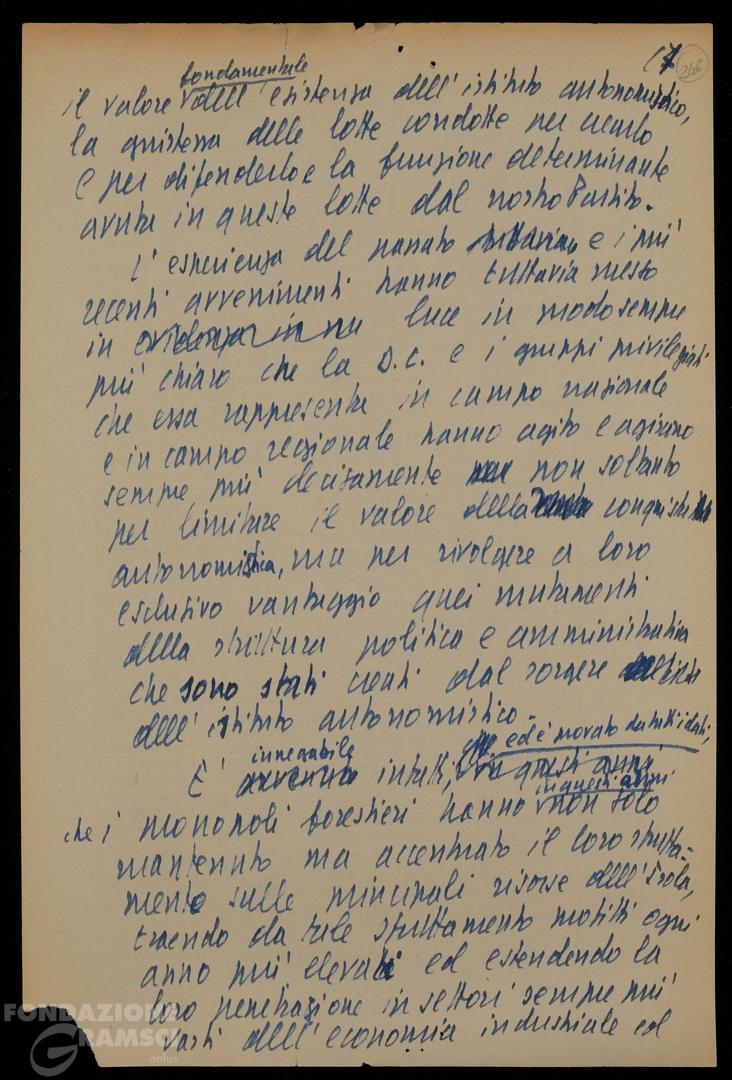 17
246
fondamentale
il valore dell'esistenza dell'istituto autonomistico,
la giustezza delle lotte condotte per crearlo
e per difenderlo e la funzione determinante
avuta in queste lotte dal nostro Partito.
L'esperienza del passato tuttavia e i più
recenti avvenimenti hanno tuttavia messo
in evidenza in luce in modo sempre
più chiaro che la D.C. e i gruppi privilegiati
che essa rappresenta in campo nazionale
e in campo regionale hanno agito e agiscono
sempre più decisamente non soltanto
per limitare il valore della conquista
autonomistica, ma per rivolgere a loro
esclusivo vantaggio quei mutamenti
della struttura politica e amministrativa
che sono stati creati dal sorgere
dell'istituto autonomistico.
innegabile ed è provato da tutti i dati,
E' infatti, in questi anni
in questi anni
che i monopoli forestieri hanno non solo
mantenuto ma accentuato il loro sfrutta-
mento sulle principali risorse dell'Isola,
traendo da tale sfruttamento profitti ogni
anno più elevati ed estendendo la
loro penetrazione in settori sempre più
vasti dell'economia industriale ed
FONDAZIONE
GRAMSCI
onlus